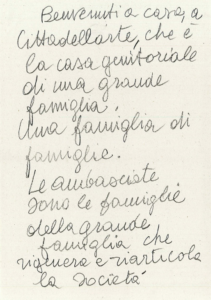 Benvenuti a casa, a
Cittadellarte, che è
la casa genitoriale
di una grande
famiglia.
Una famiglia di
famiglie.
Le ambasciate
sono le famiglie
della grande
famiglia che
rigenera e riarticola
la società